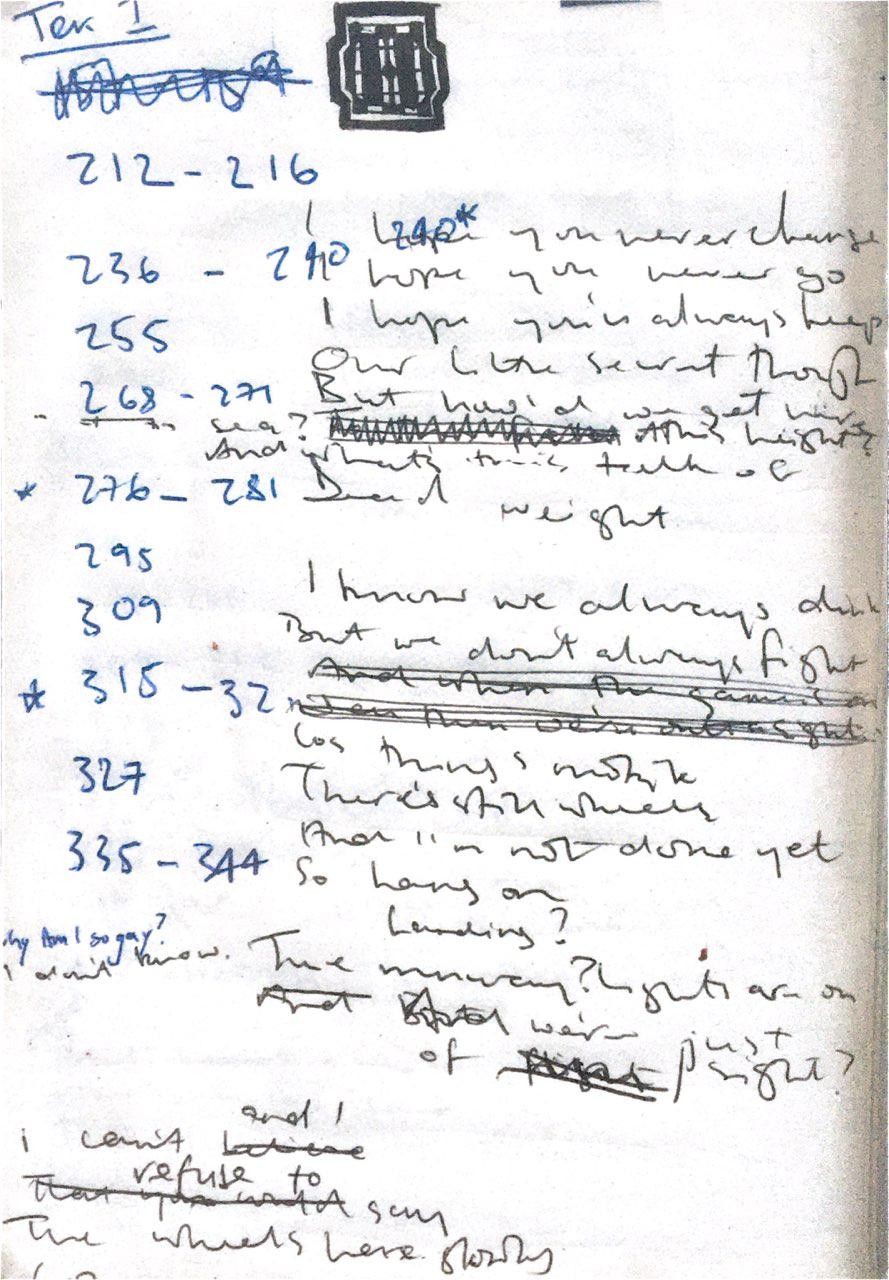 Tex 1
212 - 216
290*
I hope you never change
236 - 290
I hope you never go
255
I hope you'll always keep
Our little secret though
268 - 271
But how'd we get here
sea? this height?
And what's this talk of
* 276 - 281
Dead weight
295
309
I know we always drink
But we don't always fight
* 315 - 32
And when the game's on
Cos things
327
There's still wheels
And I'm not done yet
335 - 344
So hang on
landing?
why Am I so gay?
I don't know.
The runway? Lights are on
And we're just
of sight?
and I
i can't believe
refuse to
That you would say
The wheels have